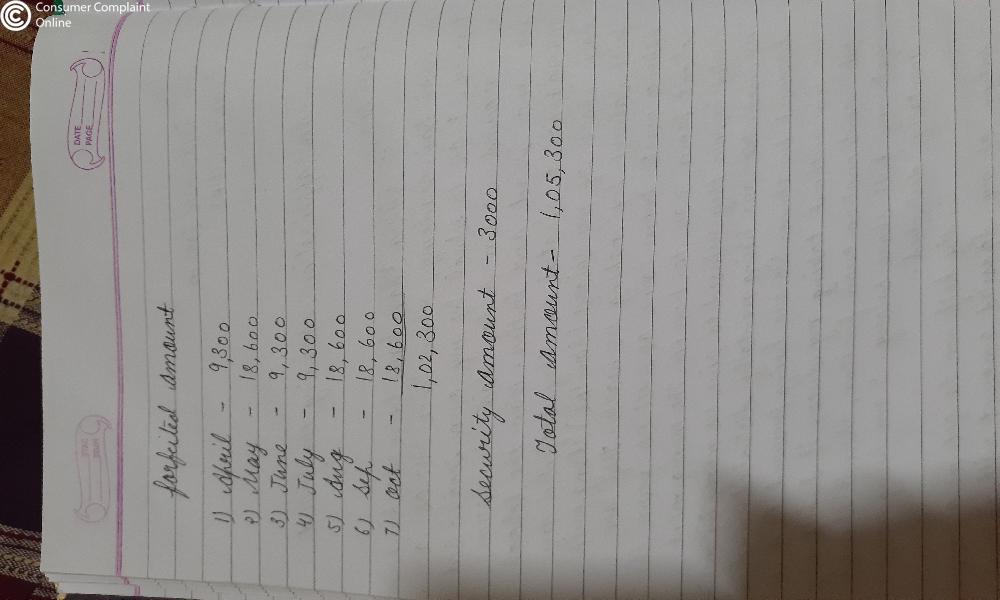 Consumer Complaint
Online
DATE
PAGE
forfeited amount
1) April - 9,300
2) May - 18,600
3) June - 9,300
4) July - 9,300
5) Aug - 18,600
6) Sep - 18,600
7) Oct - 18,600
1,02,300
Security amount - 3000
Total amount - 1,05,300